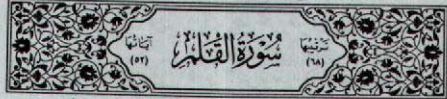 ترتيبها (٦٨) سُورَةُ القَلَمِ آياتها (٥٢)